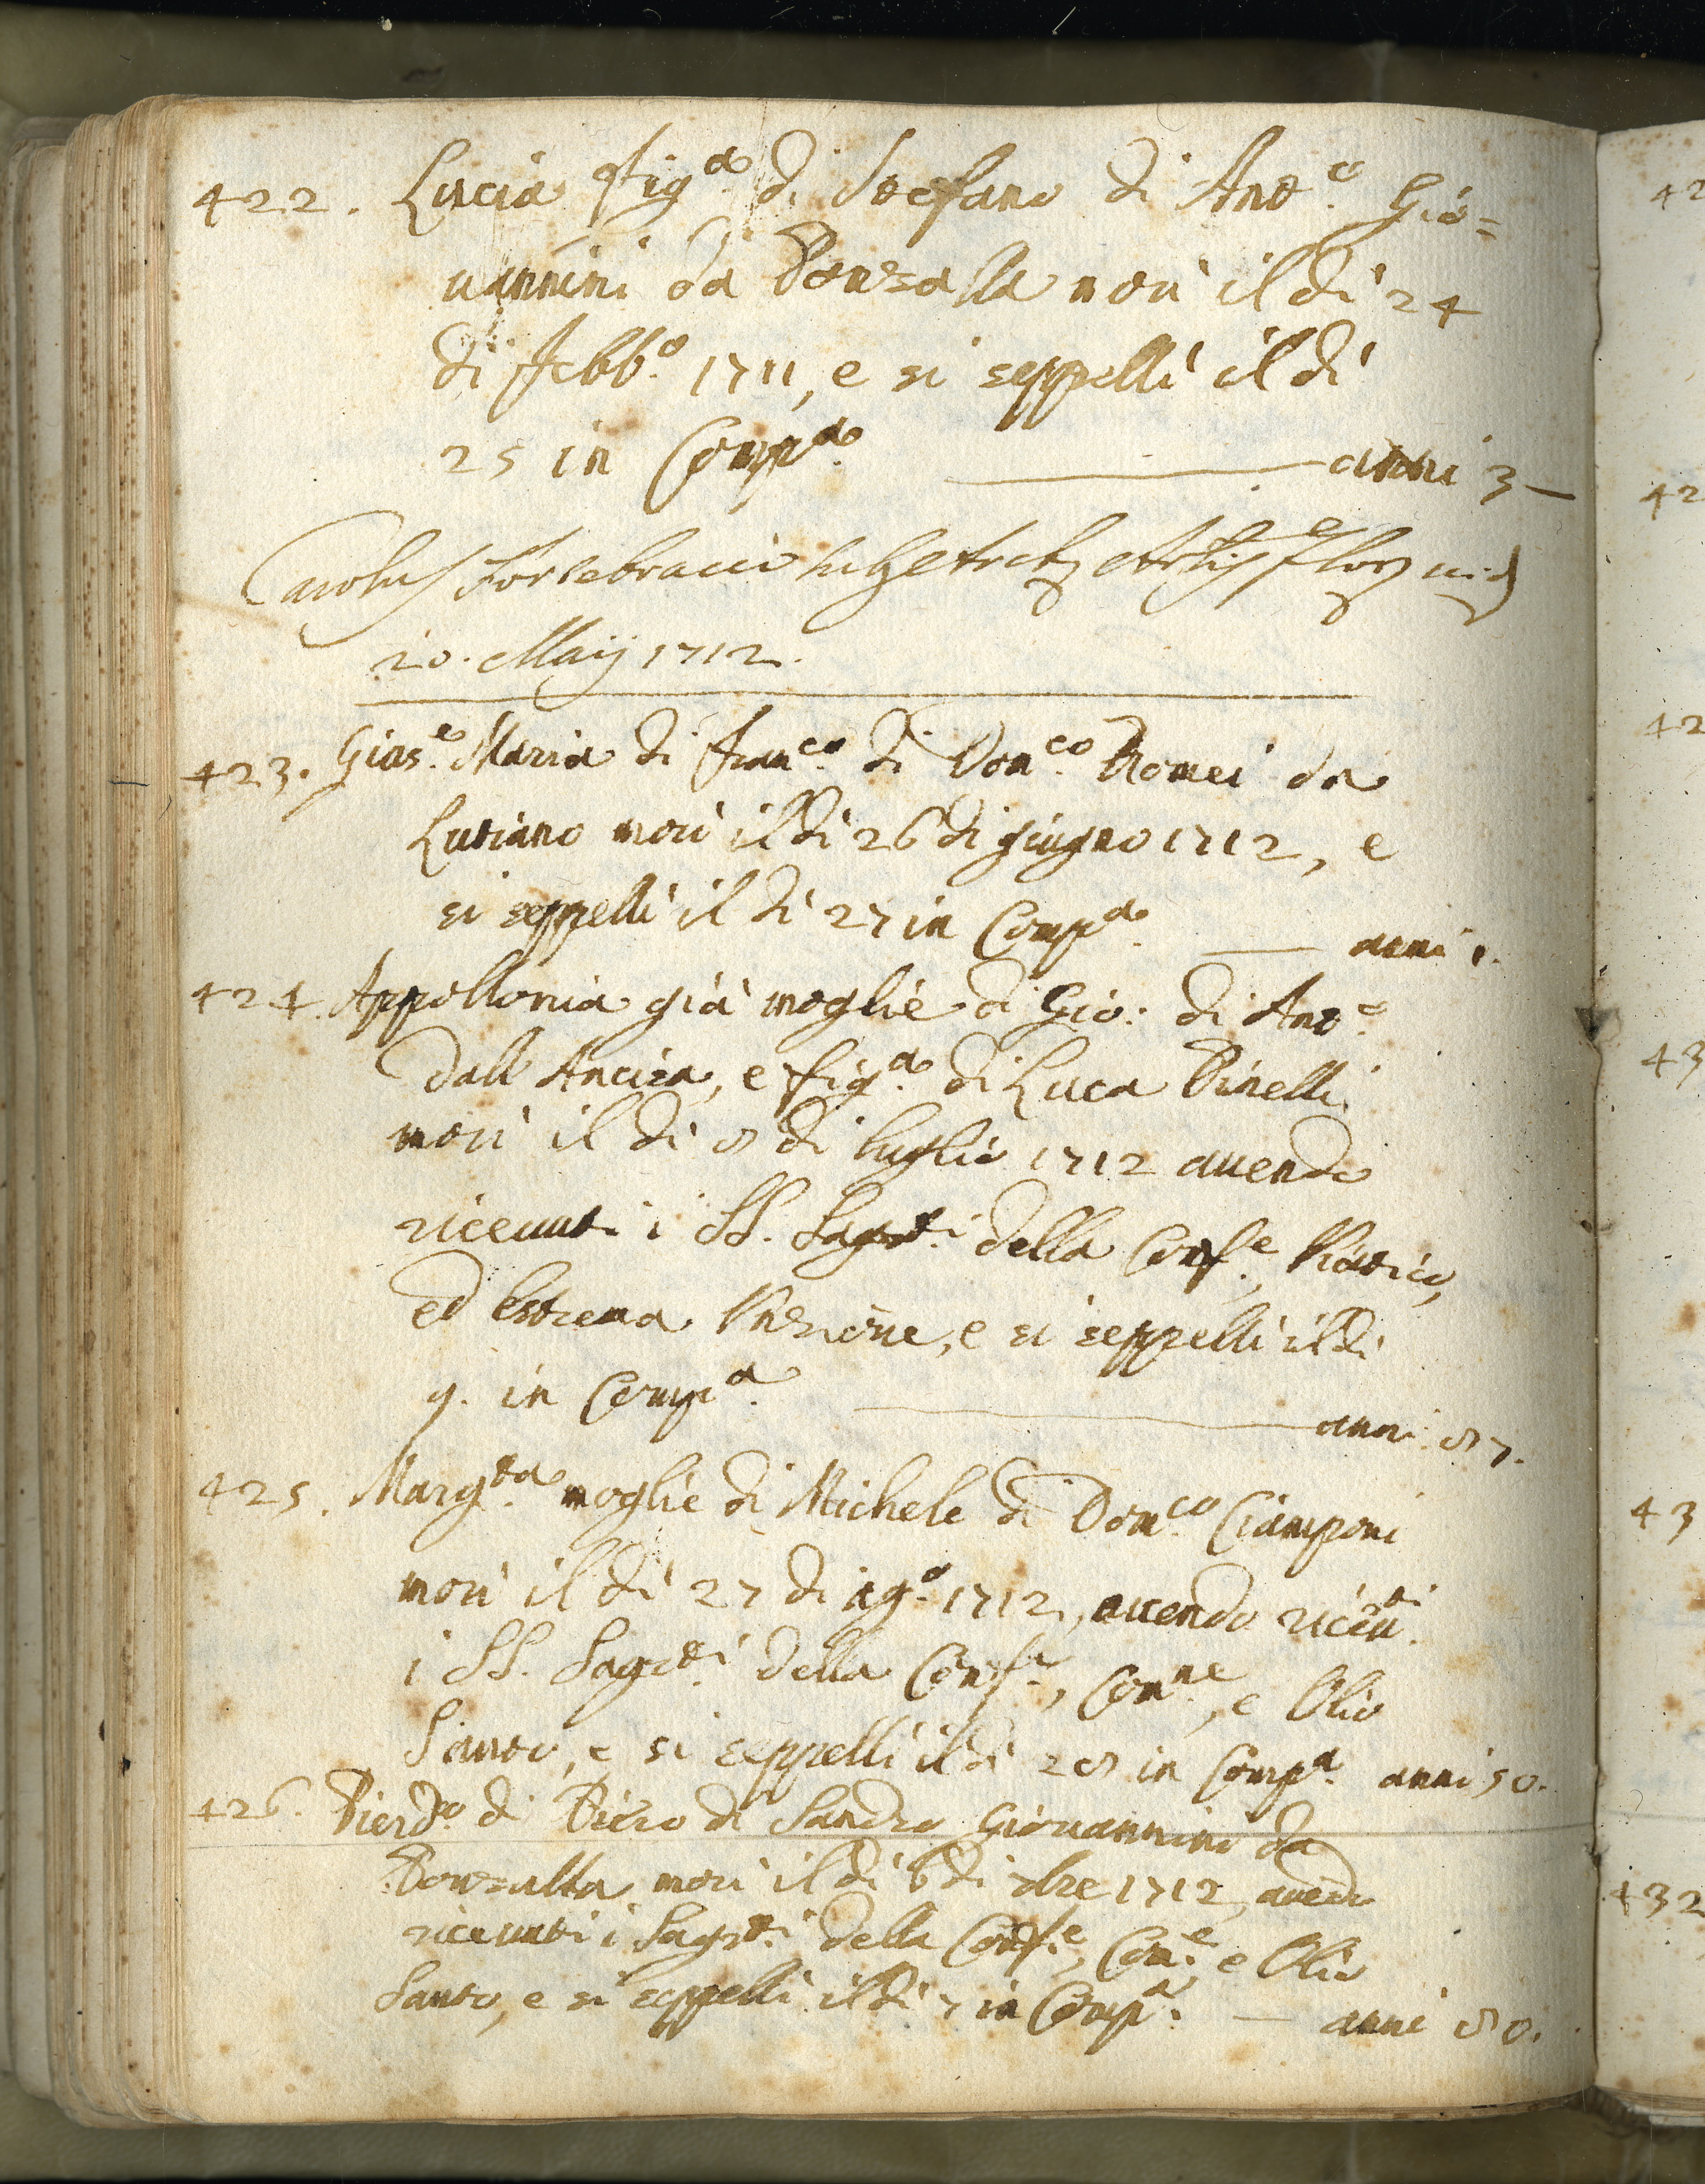 422. Lucia fig.a di Stefano di Ant.o Gio=
uannini da Ponzalla morì il dì 24
di Febb.o 1711, e si seppellì il dì
25 in Comp.a anni 3
Carolus Fortebracci
20. Maij 1712.
423. Gios.e Maria di Fran.co di Dom.co Romei da
Lutiano morì il dì 26 di giugno 1712, e
si seppellì il dì 27 in Comp.a anni 1.
424. Appollonia già moglie di Gio: di Ant.o
dall' Ancisa, e fig.a di Luca Pinelli
morì il dì 8 di luglio 1712 auendo
riceuuti i SS. Sagr.ti della Conf.e, Viatico,
ed Estrema Vnzione, e si seppellì il dì
9. in Comp.a anni 87.
425. Marg.ta moglie di Michele di Dom.co Ciamponi
morì il dì 27 di ag.o 1712, auendo riceu.ti
i SS. Sagr.ti della Conf.e, Com.ne, e Olio
Santo, e si seppellì il dì 28 in Comp.a anni 50.
426. Pierd.o di Piero di Sandro Giouannini da
Ponzalla morì il dì 6 di 7bre 1712, auendo
riceuuti i Sagr.ti della Conf.e, Com.e e Olio
Santo, e si seppellì il dì 7 in Comp.a anni 80.
42
42
42
43
43
432